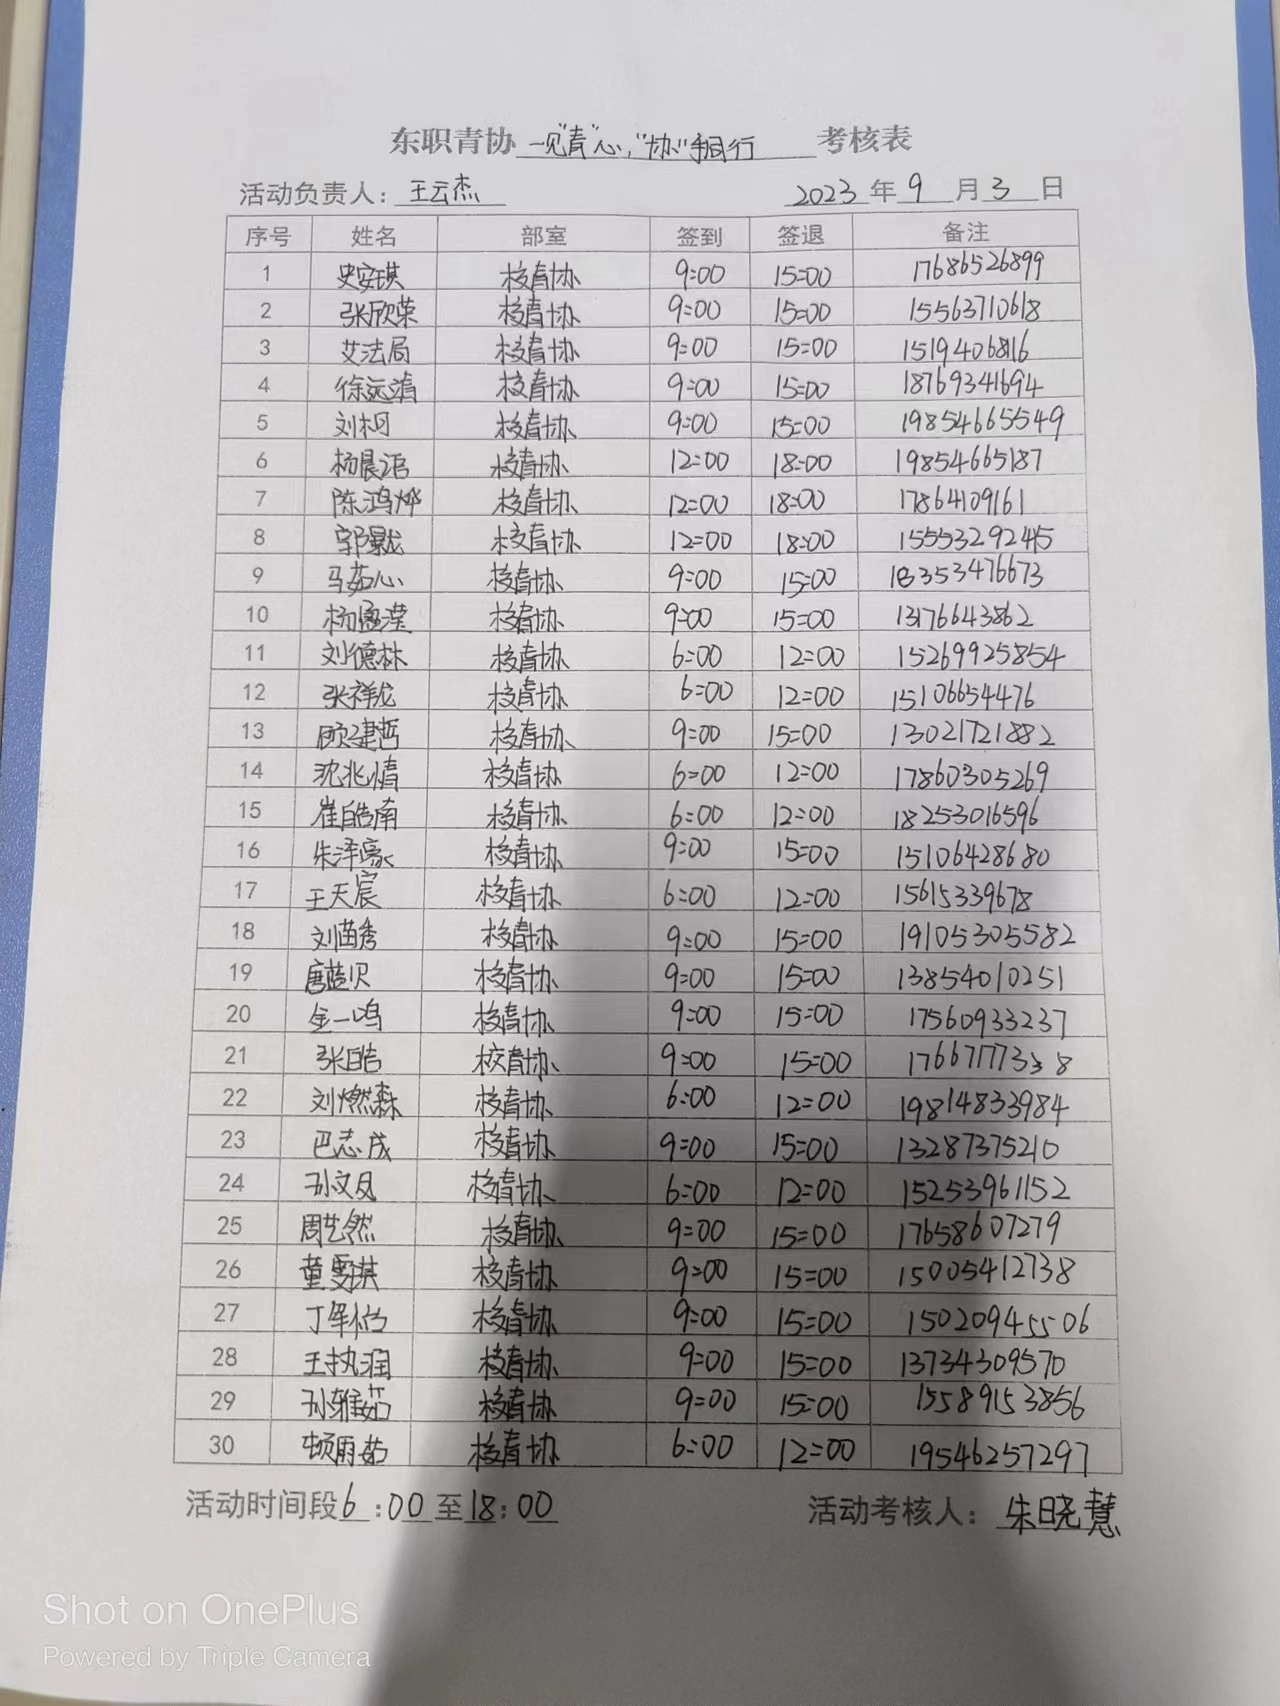 东职青协 一见"青"心,"协"手同行 考核表
活动负责人：王云杰 2023 年 9 月 3 日
序号 姓名 部室 签到 签退 备注
1 史安琪 校青协 9:00 15:00 17686526899
2 张欣荣 校青协 9:00 15:00 15563710618
3 艾法局 校青协 9:00 15:00 1519406816
4 徐远清 校青协 9:00 15:00 18769341694
5 刘树 校青协 9:00 15:00 19854665549
6 杨晨浩 校青协 12:00 18:00 19854665187
7 陈鸿烨 校青协 12:00 18:00 17864109161
8 郭景龙 校青协 12:00 18:00 15553292415
9 马茹心 校青协 9:00 15:00 18353476673
10 杨盈滢 校青协 9:00 15:00 13176643862
11 刘德林 校青协 6:00 12:00 15269925854
12 张祥龙 校青协 6:00 12:00 15106654476
13 顾建哲 校青协 9:00 15:00 13021721882
14 沈兆倩 校青协 6:00 12:00 17860305269
15 崔皓南 校青协 6:00 12:00 18253016596
16 朱泽豪 校青协 9:00 15:00 15106428680
17 王天宸 校青协 6:00 12:00 15615339678
18 刘苗秀 校青协 9:00 15:00 19105305582
19 唐莚贝 校青协 9:00 15:00 13854010251
20 金一鸣 校青协 9:00 15:00 17560933237
21 张皓 校青协 9:00 15:00 17667177338
22 刘燃森 校青协 6:00 12:00 19814833984
23 巴志成 校青协 9:00 15:00 13287375210
24 孙文凤 校青协 6:00 12:00 15253961152
25 周艺然 校青协 9:00 15:00 17658607279
26 董雯琪 校青协 9:00 15:00 15005412738
27 丁 校青协 9:00 15:00 15020945506
28 王执润 校青协 9:00 15:00 13734309570
29 孙雅茹 校青协 9:00 15:00 15589153856
30 顿雨茹 校青协 6:00 12:00 19546257297
活动时间段6:00至18:00 活动考核人：朱晓慧
Shot on OnePlus
Powered by Triple Camera